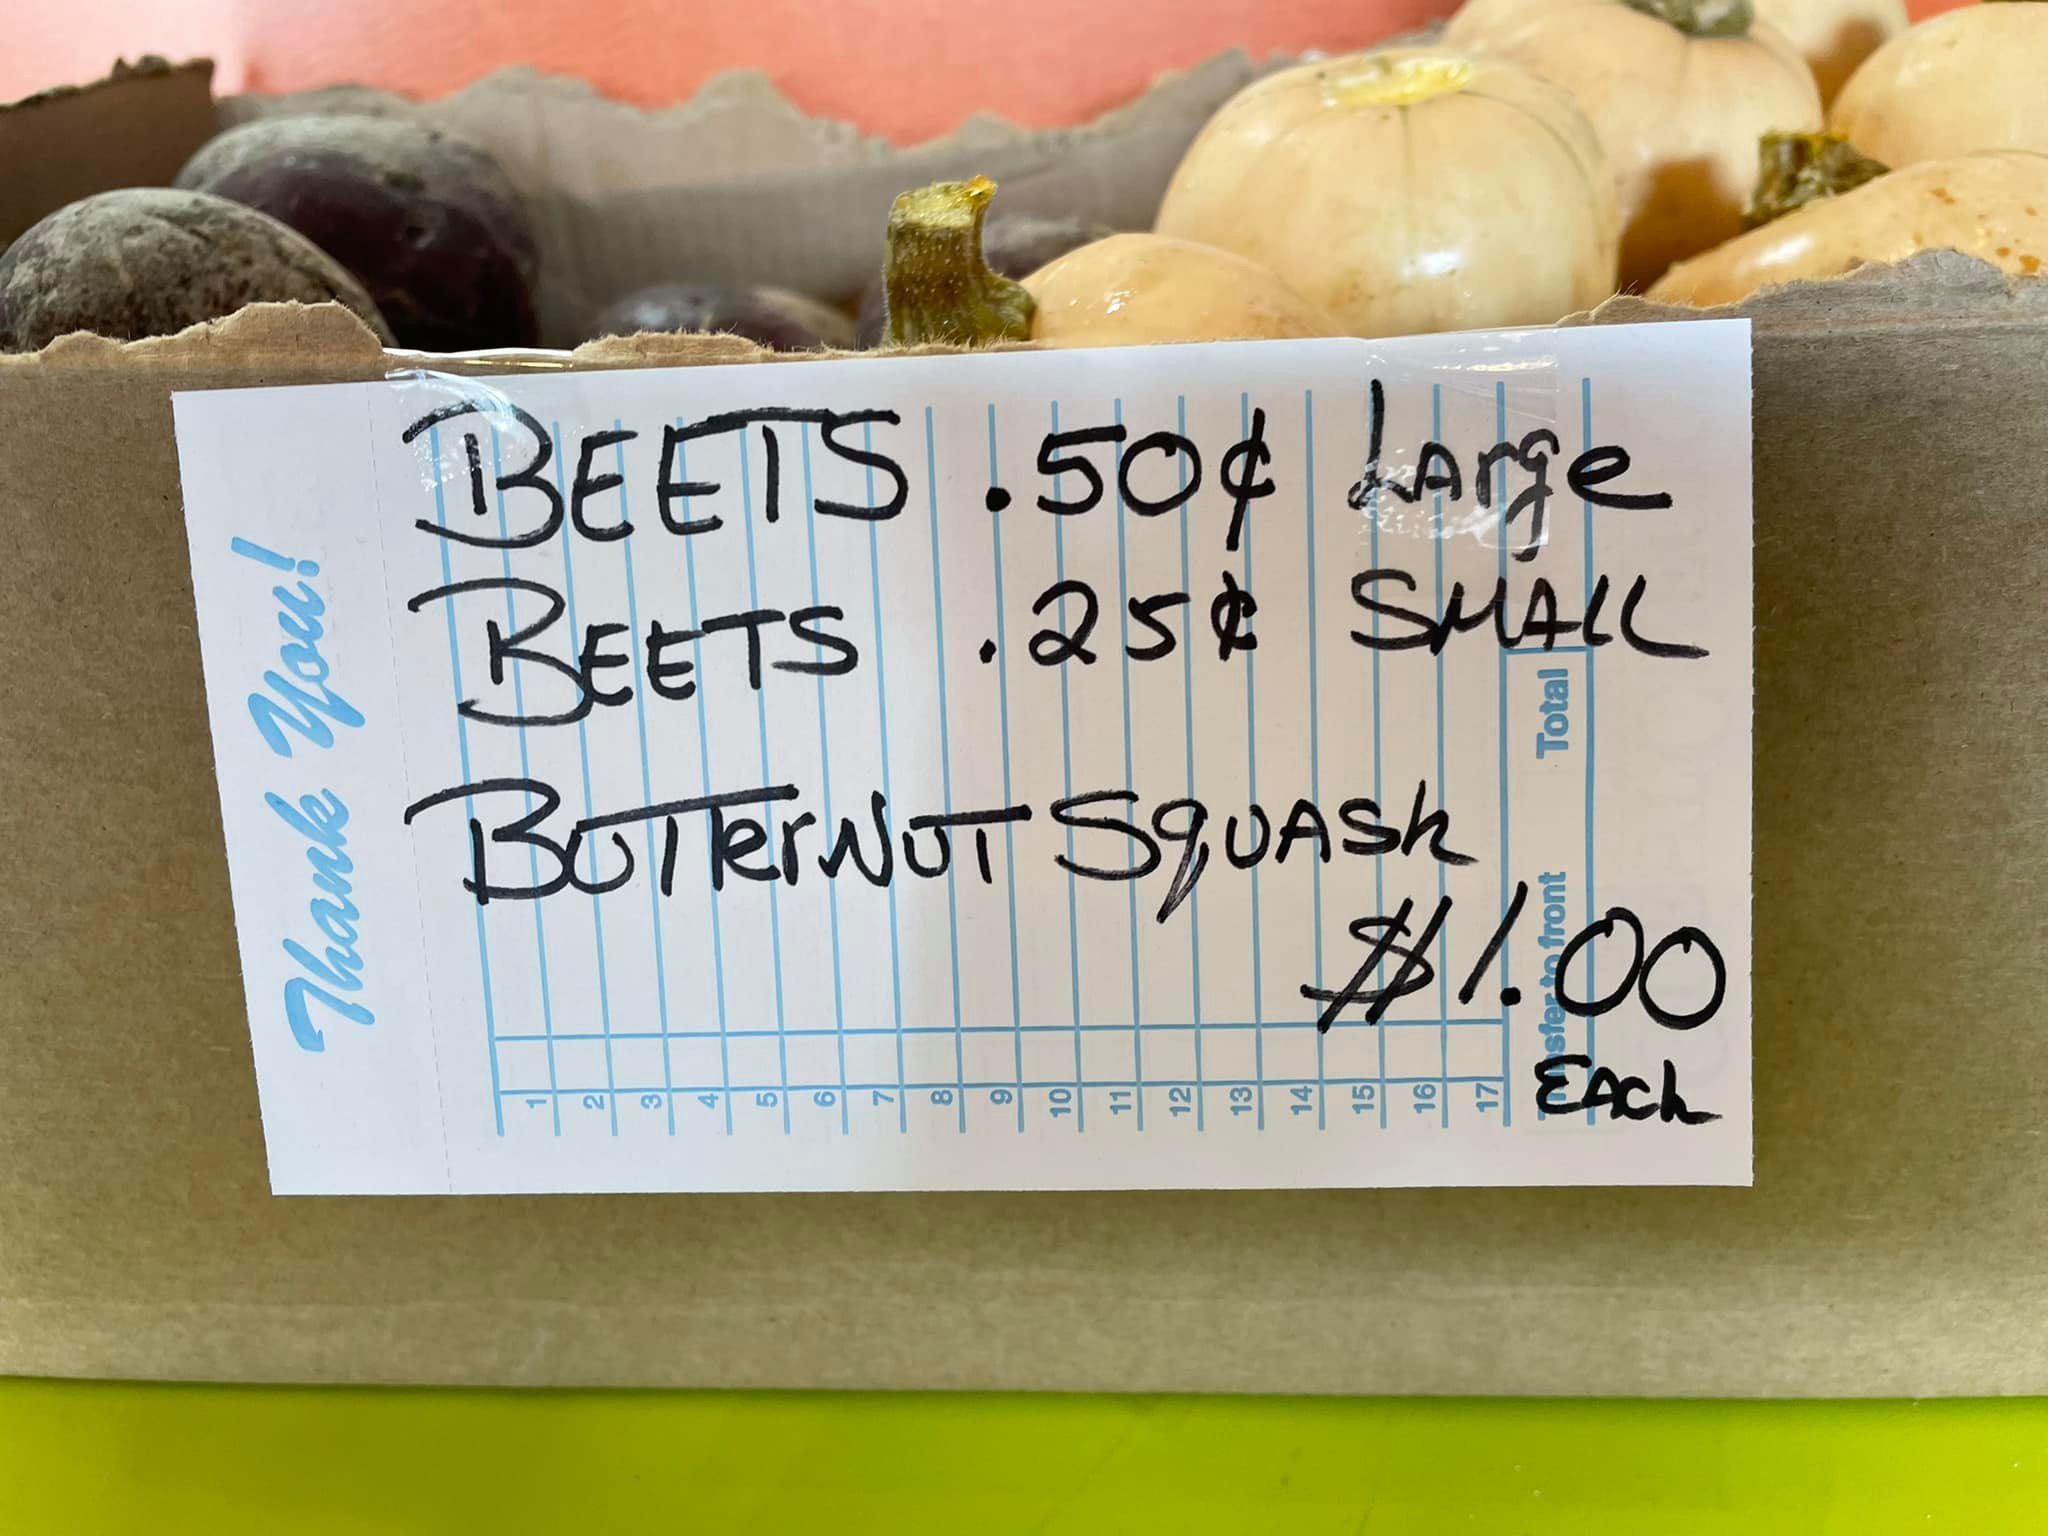 BEETS .50¢ Large
BEETS .25¢ SMALL
BUTTerNUT SqUASh
$1.00
EACh
Thank You!
Total
to front
1
2
3
4
5
6
7
8
9
10
11
12
13
14
15
16
17